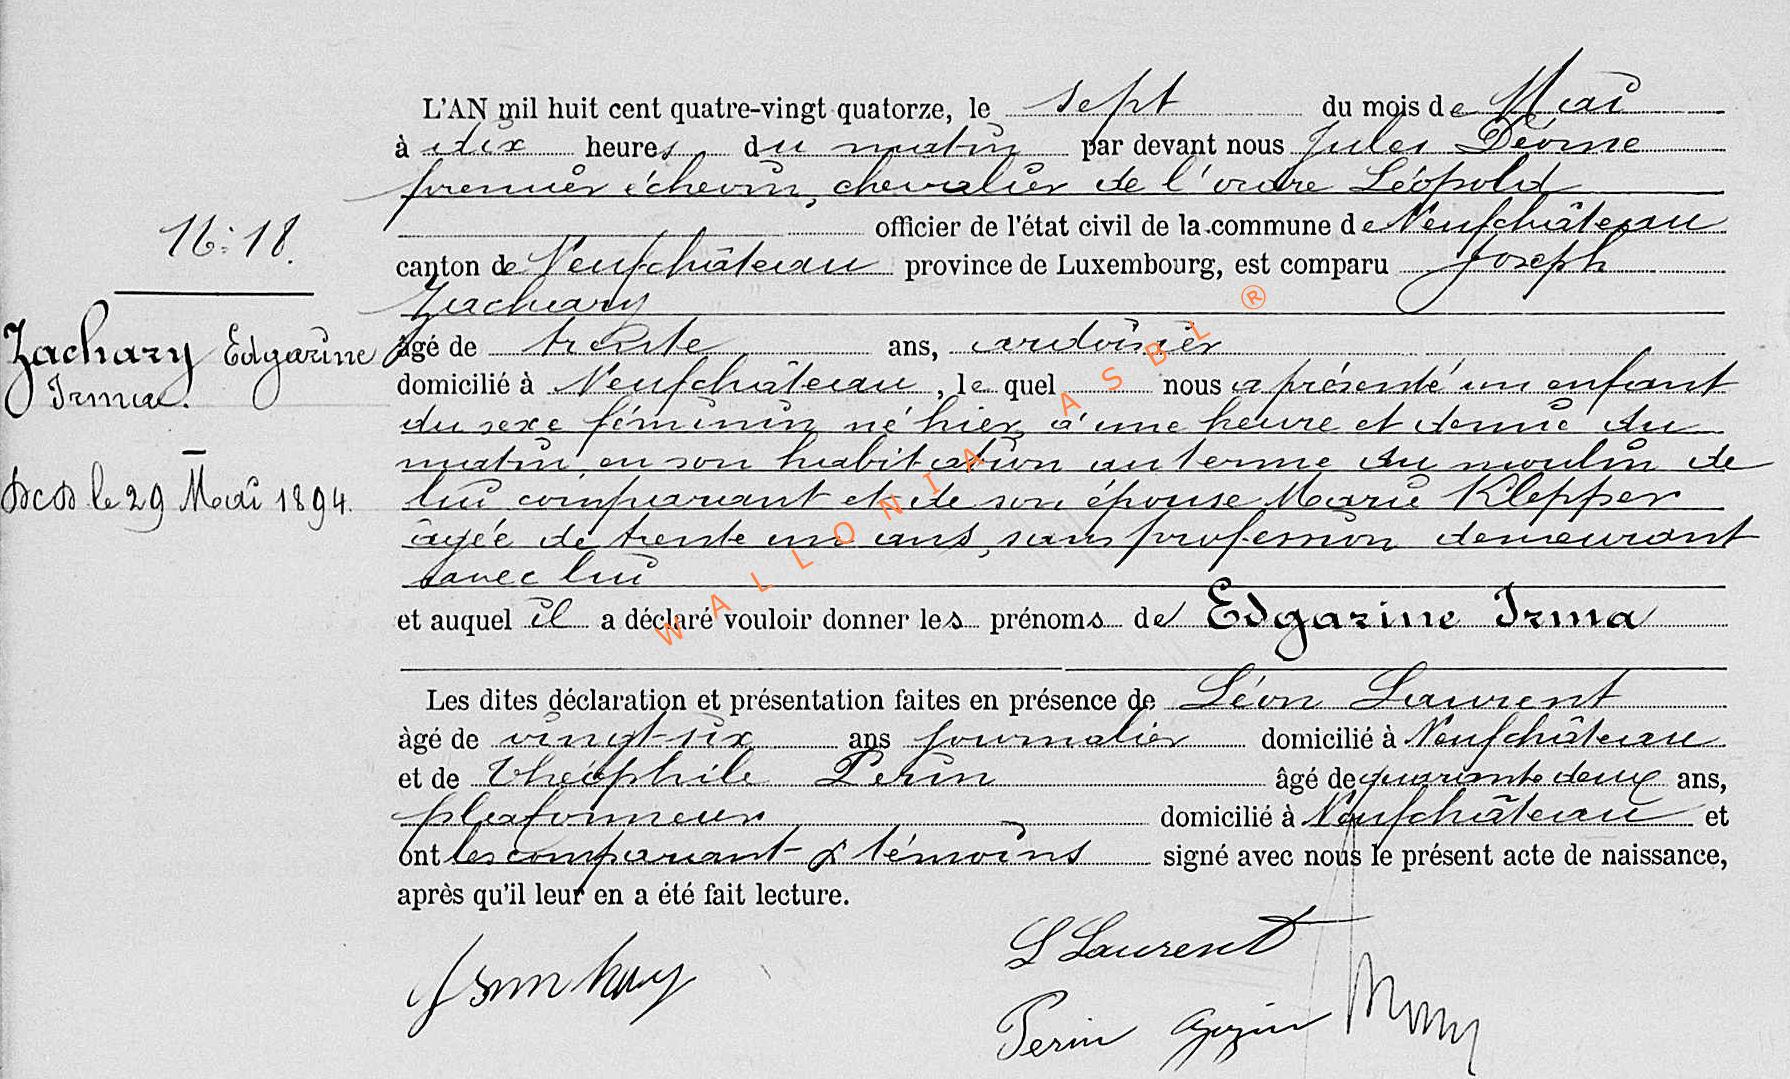 L'AN mil huit cent quatre-vingt quatorze, le sept du mois de Mai
à dix heures du matin par devant nous Jules Déome
premier échevin, chevalier de l'ordre Léopold
officier de l'état civil de la commune de Neufchâteau
canton de Neufchâteau province de Luxembourg, est comparu Joseph
Zachary
âgé de trente ans, ardoisier
domicilié à Neufchâteau, le quel nous a présenté un enfant
du sexe féminin né hier à une heure et demie du
matin, en son habitation au terme du moulin de
lui comparant et de son épouse Marie Klepper
âgée de trente un ans, sans profession demeurant
avec lui
et auquel il a déclaré vouloir donner les prénoms de Edgarine Irma
Les dites déclaration et présentation faites en présence de Léon Laurent
âgé de vingt-six ans journalier domicilié à Neufchâteau
et de Théophile Perin âgé de quarante deux ans,
plafonneur domicilié à Neufchâteau et
ont les comparant & témoins signé avec nous le présent acte de naissance,
après qu'il leur en a été fait lecture.
N: 18.
Zachary Edgarine
Irma.
Dcd le 29 Mai 1894.
L Laurent
Perin
WALLONIA ASBL ®